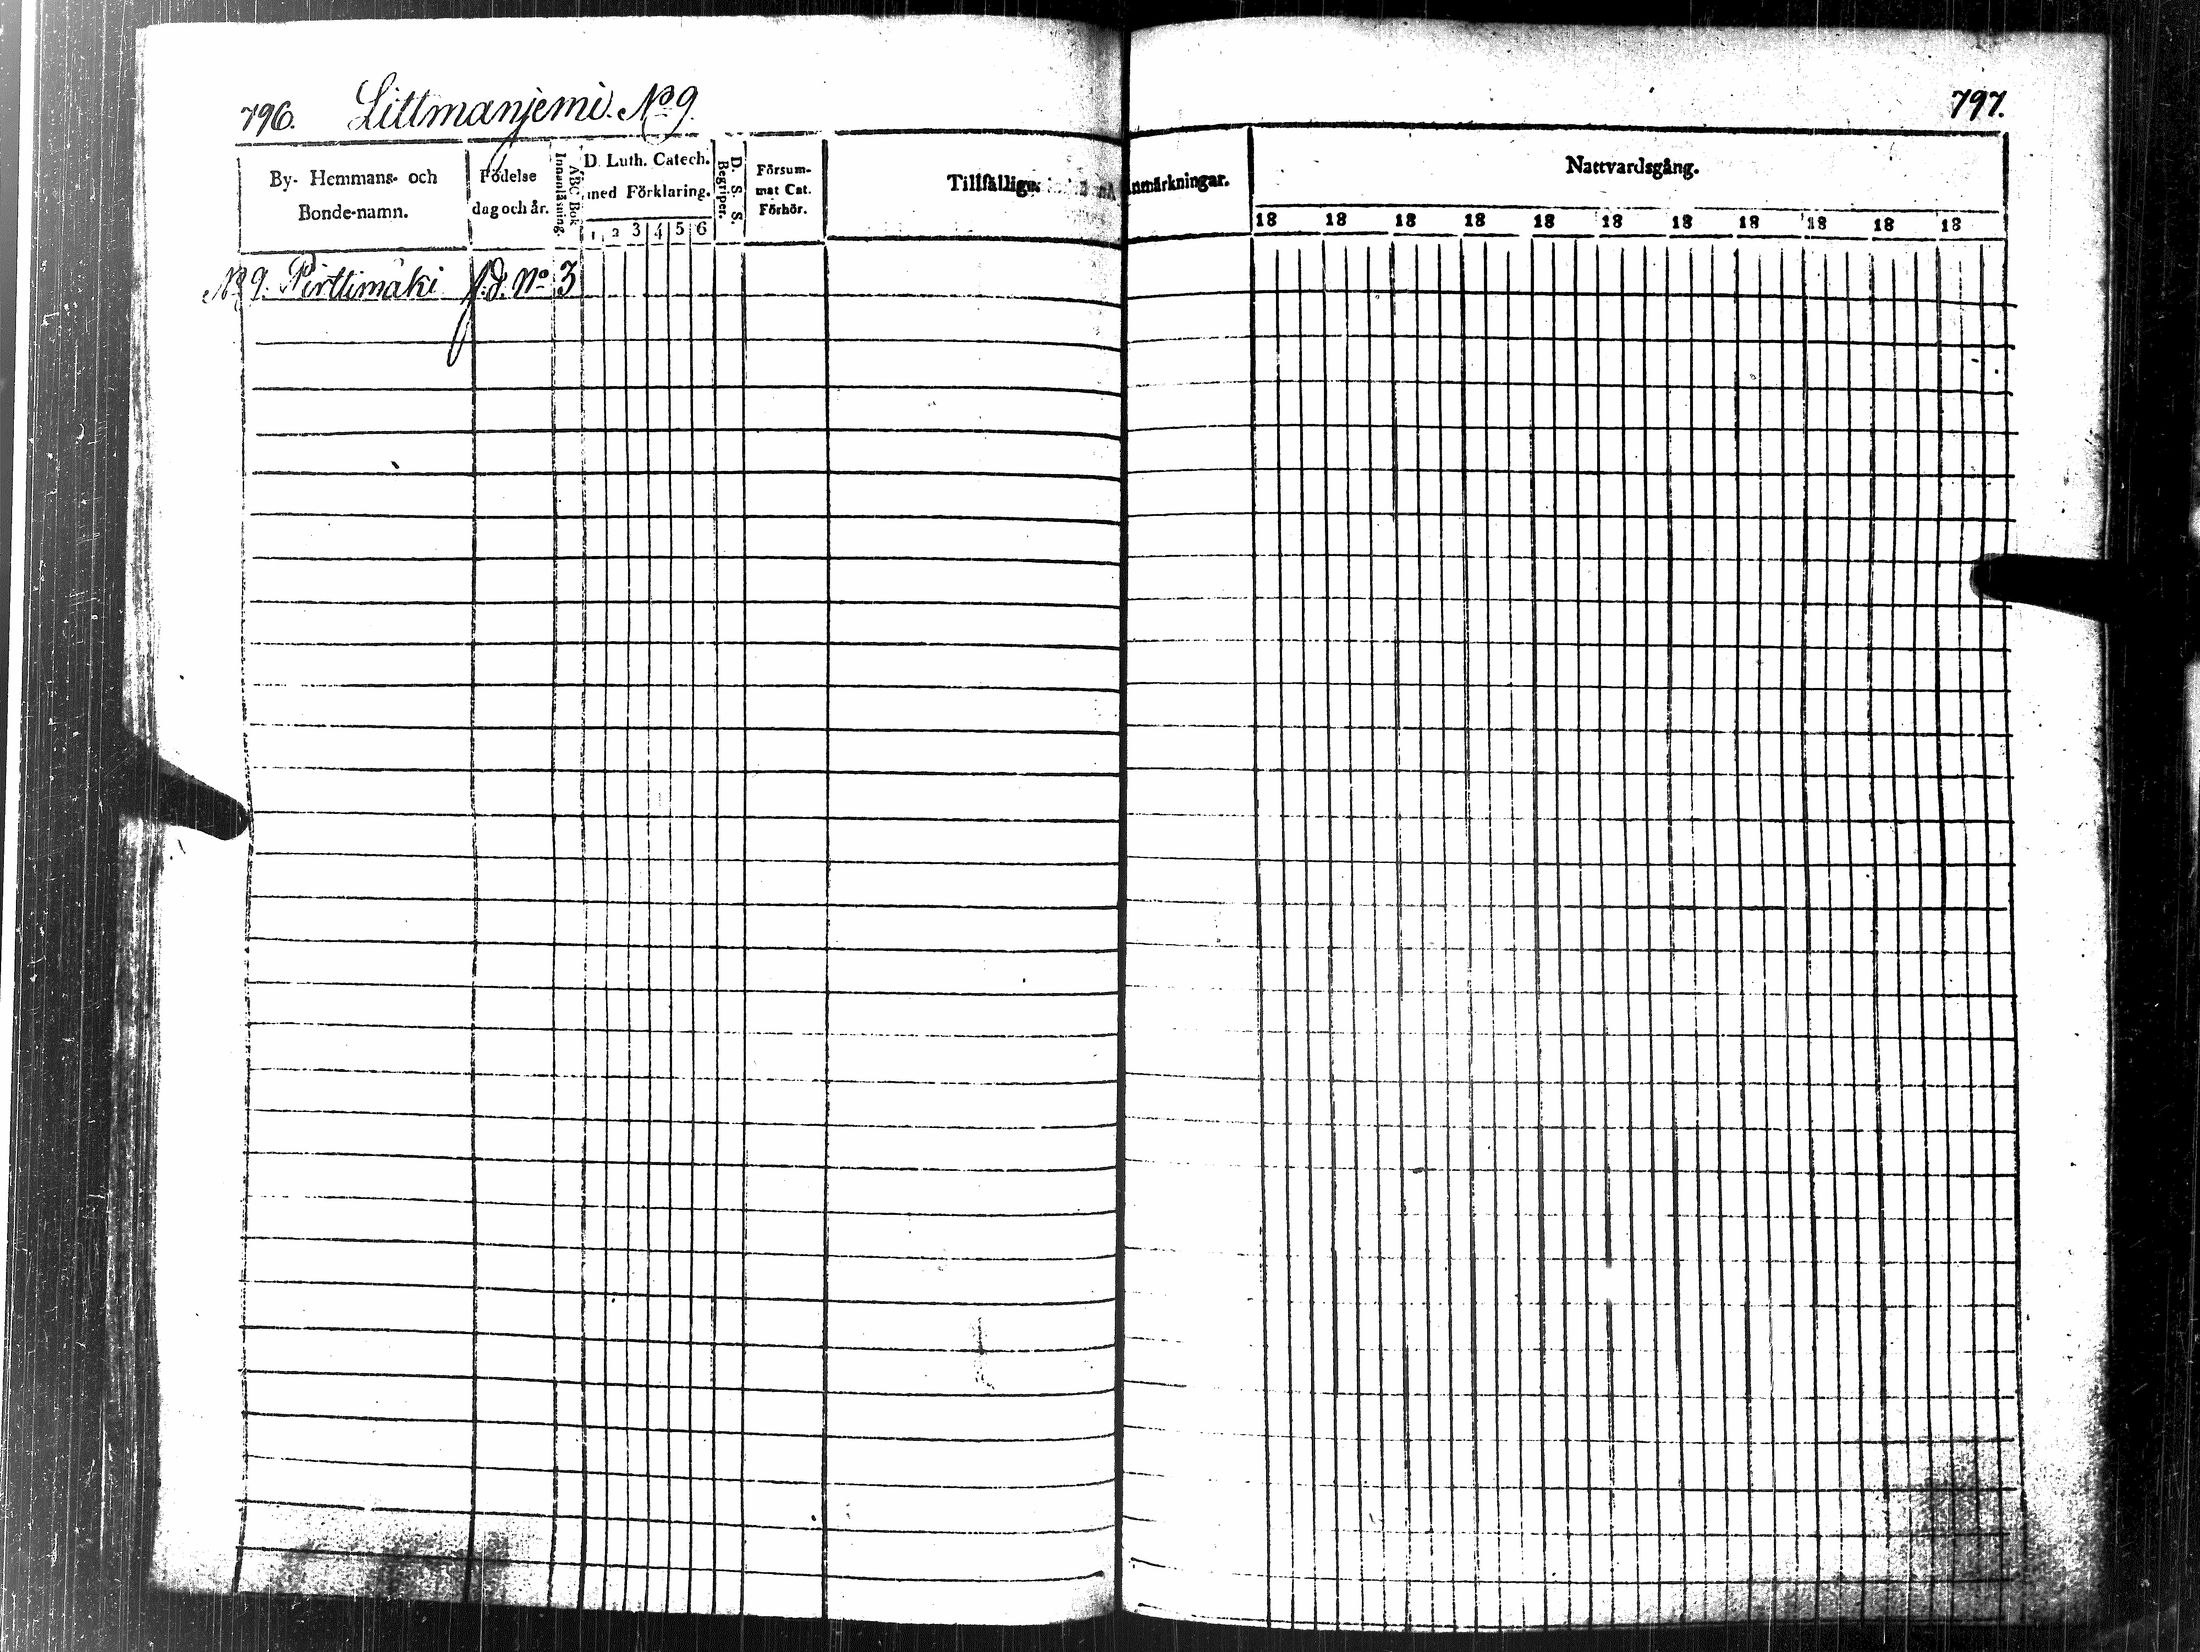 796. Littmanjemi. No 9.
By- Hemmans- och
Bonde-namn.
Födelse
dag och år.
Innanläsning.
ABC Bok.
D. Luth. Catech.
med Förklaring.
1 2 3 4 5 6
D. S. S.
Begriper.
Försum-
mat Cat.
Förhör.
Tillfällige
No 9. Pirttimäki f.d. No 3
797.
Anmärkningar.
Nattvardsgång.
18 18 18 18 18 18 18 18 18 18 18